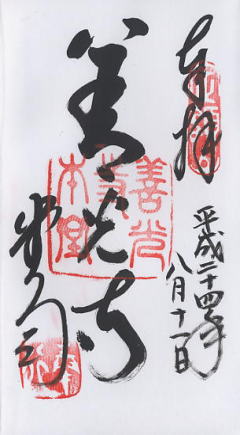 奉拝
平成二十四年
八月十一日
善光寺
善光
寺
本堂